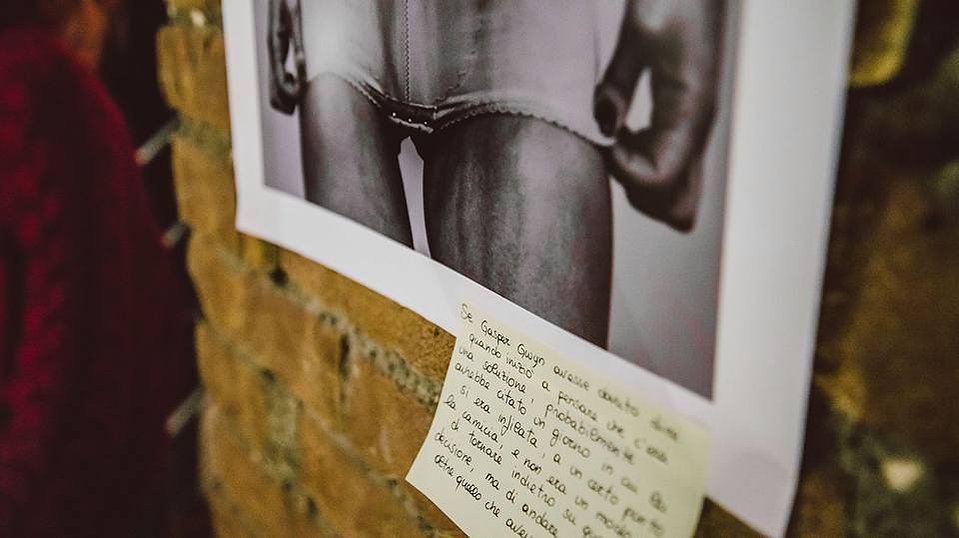 Se Gasper Gwyn avesse dovuto dire
quando iniziò a pensare che c'era
una soluzione, probabilmente
avrebbe citato un giorno in cui lei
si era infilata, a un certo punto
la camicia, e non era un modo
di tornare indietro su qu
delusione, ma di andare
oltre quello che avev